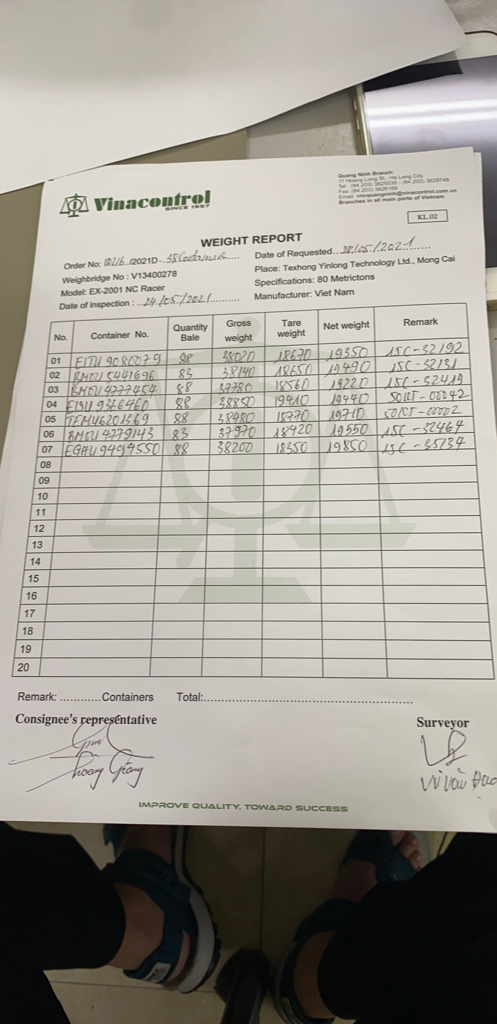 Quang Ninh Branch:
11 Hoang Long St., Ha Long City
Tel: (84.203) 3825535 - (84.203) 3829743
Fax: (84.203) 3828169
Email: vncquangninh@vinacontrol.com.vn
Branches in all main ports of Vietnam
Vinacontrol
SINCE 1957
KL.02
WEIGHT REPORT
Order No: /2021D-
Date of Requested...28/05/2021
Weighbridge No : V13400278
Place: Texhong Yinlong Technology Ltd., Mong Cai
Model: EX-2001 NC Racer
Specifications: 80 Metrictons
Date of inspection : ..24/05/2021
Manufacturer: Viet Nam
No. Container No. Quantity Bale Gross weight Tare weight Net weight Remark
01 EITU 9080079 88 38020 18670 19350 15C-32192
02 BMOU 5441696 83 38140 18650 19490 15C-32131
03 BMOU 4777454 88 37780 18560 19220 15C-32419
04 EISU 9346460 88 38850 19410 19440 50RT-00042
05 TEMU6201369 88 38480 18770 19710 50RT-00022
06 BMOU 4779143 83 37970 18420 19550 15C-32464
07 EGHU 9494550 88 38200 18350 19850 15C-35734
08
09
10
11
12
13
14
15
16
17
18
19
20
Remark: ............Containers Total:
Consignee's representative
Surveyor
Hoang Giang
Vi Văn Đạo
IMPROVE QUALITY, TOWARD SUCCESS